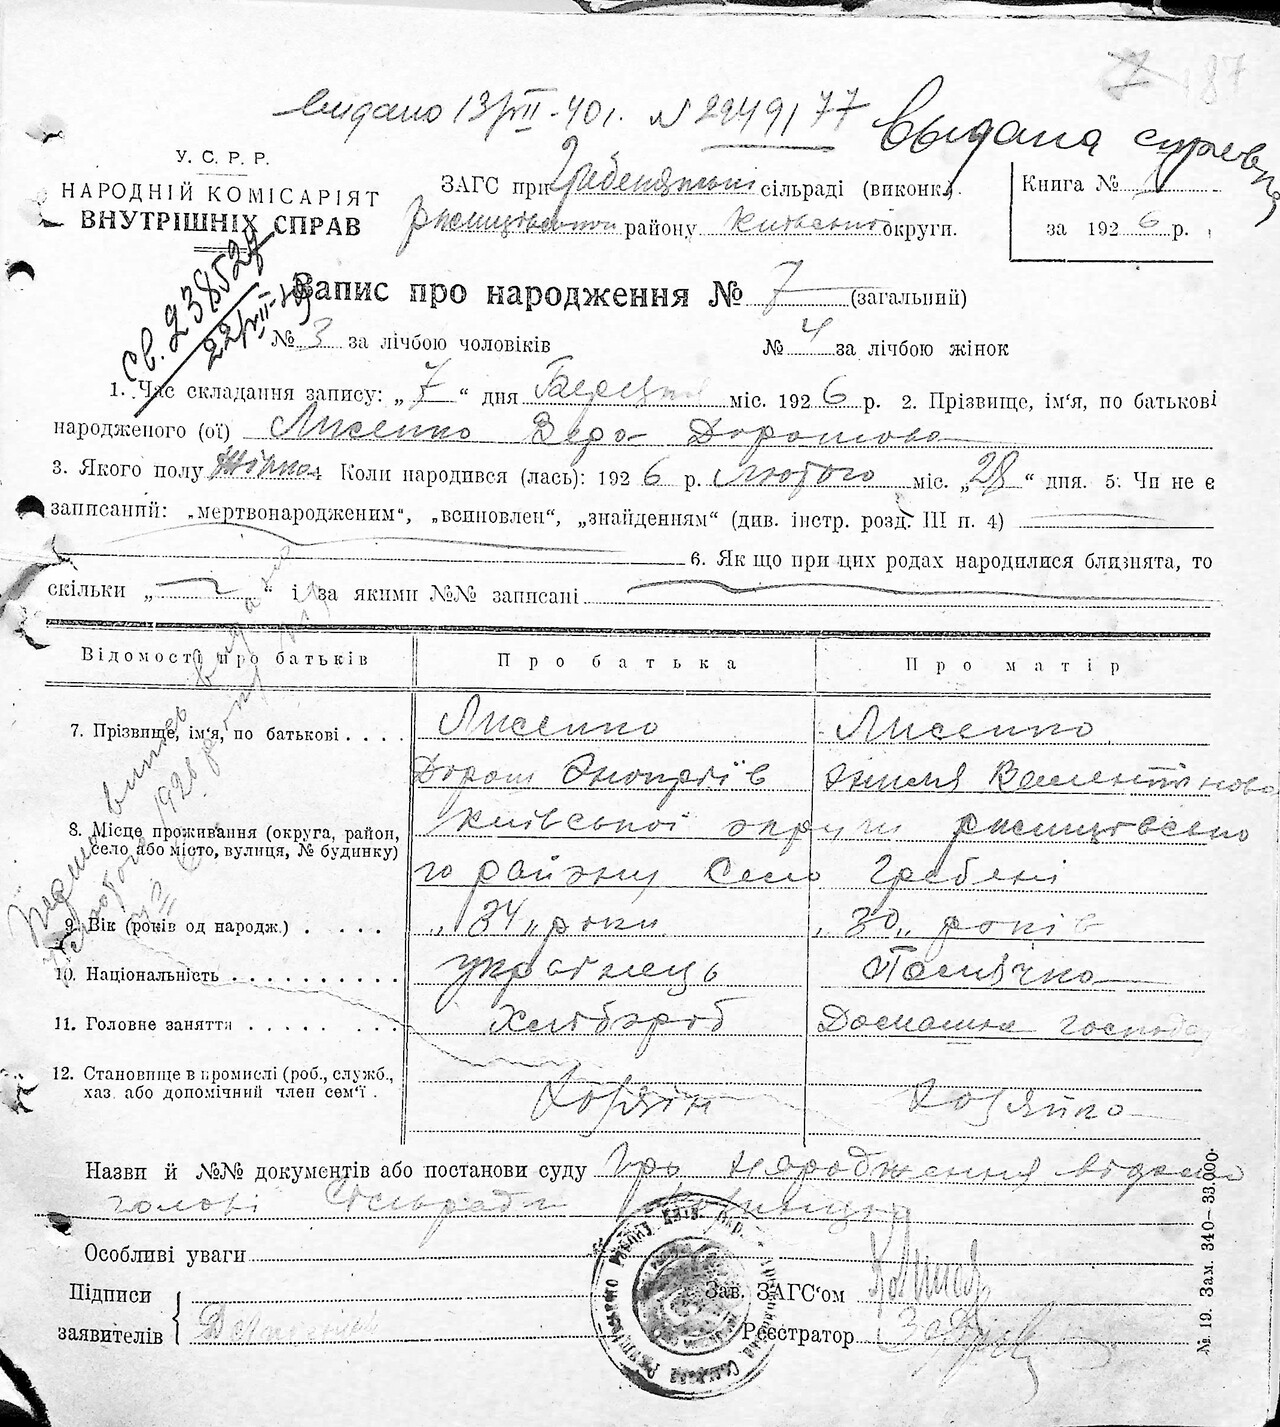 87
видано 13/VII-40 г. N 2249177
выдана справка
У. С. Р. Р.
НАРОДНІЙ КОМІСАРІЯТ
ВНУТРІШНІХ СПРАВ
ЗАГС при Гребенянські сільраді (виконк).
Ржищівського району Київської округи.
Книга №
за 1926 р.
св. 238527
Запис про народження № 7 (загальний)
№ 3 за лічбою чоловіків № 4 за лічбою жінок
1. Час складання запису: „7“ дня Березня міс. 1926 р. 2. Прізвище, ім‘я, по батькові
народженого (ої) Лисенко Вера Дорошова
3. Якого полу жінка 4 Коли народився (лась): 1926 р. лютого міс. „28“ дня. 5. Чи не є
записаний: „мертвонародженим“, „всиновлен“, „знайденням“ (див. інстр. розд. III п. 4)
6. Як що при цих родах народилися близнята, то
скільки „ “ і за якими №№ записані
Відомості про батьків Про батька Про матір
7. Прізвище, ім‘я, по батькові . . . . Лисенко Лисенко
Дорош Онопріїв Емилія Валентінова
8. Місце проживання (округа, район,
село або місто, вулиця, № будинку)
Київської округи Ржищівсько
го району Село Гребені
9. Вік (років од народж.) . . . . „34„ роки „30„ років
10. Національність . . . . . . . . . українець Полячка
11. Головне заняття . . . . . . . . Хлібороб Домашне господ
12. Становище в промислі (роб., служб.,
хаз. або допомічний член сем‘ї .
Хозяїн Хозяйка
Назви й №№ документів або постанови суду Про народження відомо
голові Сільради
Особливі уваги
Підписи
заявителів
Зав. ЗАГС‘ом
Реєстратор
№ 19. Зам. 340—33.000·